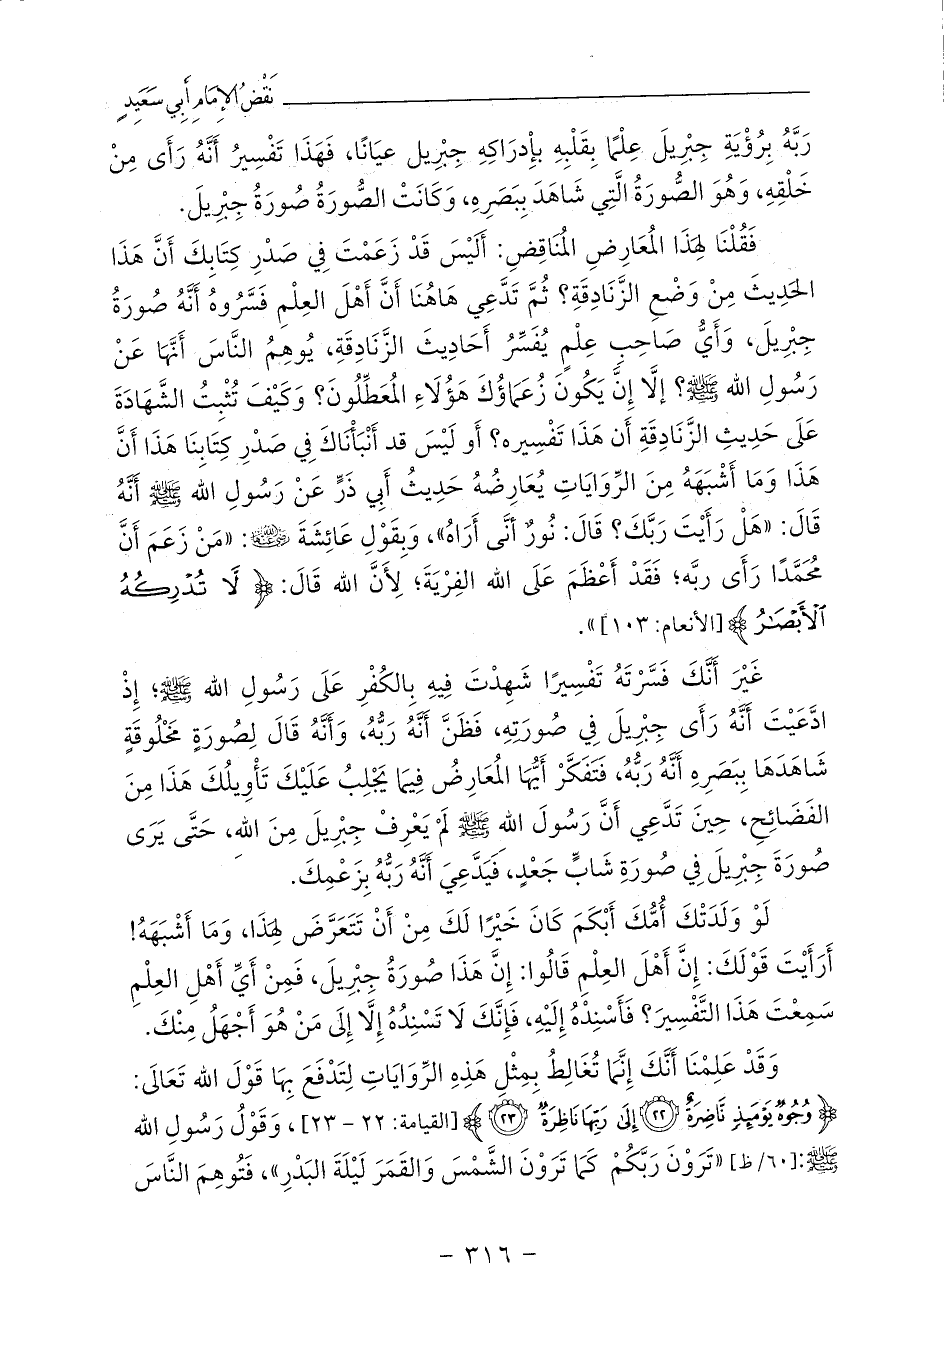 نَقْضُ الإِمَامِ أَبِي سَعَيِدٍ
رَبَّهُ بِرُؤْيَةِ جِبْرِيلَ عِلْمًا بِقَلْبِهِ بِإِدْرَاكِهِ جِبْرِيل عيَانًا، فَهَذَا تَفْسِيرُ أَنَّهُ رَأَى مِنْ
خَلْقِهِ، وَهُوَ الصُّورَةُ الَّتِي شَاهَدَ بِبَصَرِهِ، وَكَانَتْ الصُّورَةُ صُورَةُ جِبْرِيلَ.
فَقُلْنَا لِهَذَا المُعَارِضِ المُنَاقِضِ: أَلَيْسَ قَدْ زَعَمْتَ فِي صَدْرِ كِتَابِكَ أَنَّ هَذَا
الحَدِيثَ مِنْ وَضْعِ الزَّنَادِقَةِ؟ ثُمَّ تَدَّعِي هَاهُنَا أَنَّ أَهْلَ العِلْمِ فَسَّرُوهُ أَنَّهُ صُورَةُ
جِبْرِيلَ، وَأَيُّ صَاحِبِ عِلْمٍ يُفَسِّرُ أَحَادِيثَ الزَّنَادِقَةِ، يُوهِمُ النَّاسَ أَنَّهَا عَنْ
رَسُولِ الله ﷺ؟ إلَّا إِنَّ يَكُونَ زُعَمَاؤُكَ هَؤُلَاءِ المُعَطِّلُونَ؟ وَكَيْفَ تُثْبِتُ الشَّهَادَةَ
عَلَى حَدِيثِ الزَّنَادِقَةِ أن هَذَا تَفْسِيره؟ أو لَيْسَ قد أَنْبَأْنَاكَ فِي صَدْرِ كِتَابِنَا هَذَا أَنَّ
هَذَا وَمَا أَشْبَهَهُ مِنَ الرِّوَايَاتِ يُعَارِضُهُ حَدِيثُ أَبِي ذَرٍّ عَنْ رَسُولِ الله ﷺ أَنَّهُ
قَالَ: «هَلْ رَأَيْتَ رَبَّكَ؟ قَالَ: نُورٌ أَنَّى أَرَاهُ»، وَبِقَوْلِ عَائِشَةَ ﵂: «مَنْ زَعَمَ أَنَّ
مُحَمَّدًا رَأَى ربَّه؛ فَقَدْ أَعْظَمَ عَلَى الله الفِرْيَةَ؛ لِأَنَّ الله قَالَ: ﴿ لَّا تُدۡرِكُهُ
ٱلۡأَبۡصَٰرُ ﴾ [الأنعام: ١٠٣]».
غَيْرَ أَنَّكَ فَسَّرْتَهُ تَفْسِيرًا شَهِدْتَ فِيهِ بِالكُفْرِ عَلَى رَسُولِ الله ﷺ؛ إِذْ
ادَّعَيْتَ أَنَّهُ رَأَى جِبْرِيلَ فِي صُورَتِهِ، فَظَنَّ أَنَّهُ رَبُّهُ، وَأَنَّهُ قَالَ لِصُورَةٍ مَخْلُوقَةٍ
شَاهَدَهَا بِبَصَرِهِ أَنَّهُ رَبُّهُ، فَتَفَكَّرْ أَيُّهَا المُعَارِضُ فِيمَا يَجْلِبُ عَلَيْكَ تَأْوِيلُكَ هَذَا مِنَ
الفَضَائِحِ، حِينَ تَدَّعِي أَنَّ رَسُولَ الله ﷺ لَمْ يَعْرِفْ جِبْرِيلَ مِنَ الله، حَتَّى يَرَى
صُورَةَ جِبْرِيلَ فِي صُورَةِ شَابٍّ جَعْدٍ، فَيَدَّعِيَ أَنَّهُ رَبُّهُ بِزَعْمِكَ.
لَوْ وَلَدَتْكَ أُمُّكَ أَبْكَمَ كَانَ خَيْرًا لَكَ مِنْ أَنْ تَتَعَرَّضَ لِهَذَا، وَمَا أَشْبَهَهُ!
أَرَأَيْتَ قَوْلَكَ: إِنَّ أَهْلَ العِلْمِ قَالُوا: إِنَّ هَذَا صُورَةُ جِبْرِيلَ، فَمِنْ أَيِّ أَهْلِ العِلْمِ
سَمِعْتَ هَذَا التَّفْسِيرَ؟ فَأَسْنِدْهُ إِلَيْهِ، فَإِنَّكَ لَا تَسْنِدُهُ إِلَّا إِلَى مَنْ هُوَ أَجْهَلُ مِنْكَ.
وَقَدْ عَلِمْنَا أَنَّكَ إِنَّمَا تُغَالِطُ بِمِثْلِ هَذِهِ الرِّوَايَاتِ لِتَدْفَعَ بِهَا قَوْلَ الله تَعَالَى:
﴿ وُجُوهٞ يَوۡمَئِذٖ نَّاضِرَةٌ ۝٢٢ إِلَىٰ رَبِّهَا نَاظِرَةٞ ۝٢٣ ﴾ [القيامة: ٢٢ - ٢٣]، وَقَوْلُ رَسُولِ الله
ﷺ:[٦٠/ ظ] «تَرَوْنَ رَبَّكُمْ كَمَا تَرَوْنَ الشَّمْسَ وَالقَمَرَ لَيْلَةَ البَدْرِ»، فَتُوهِمَ النَّاسَ
- ٣١٦ -